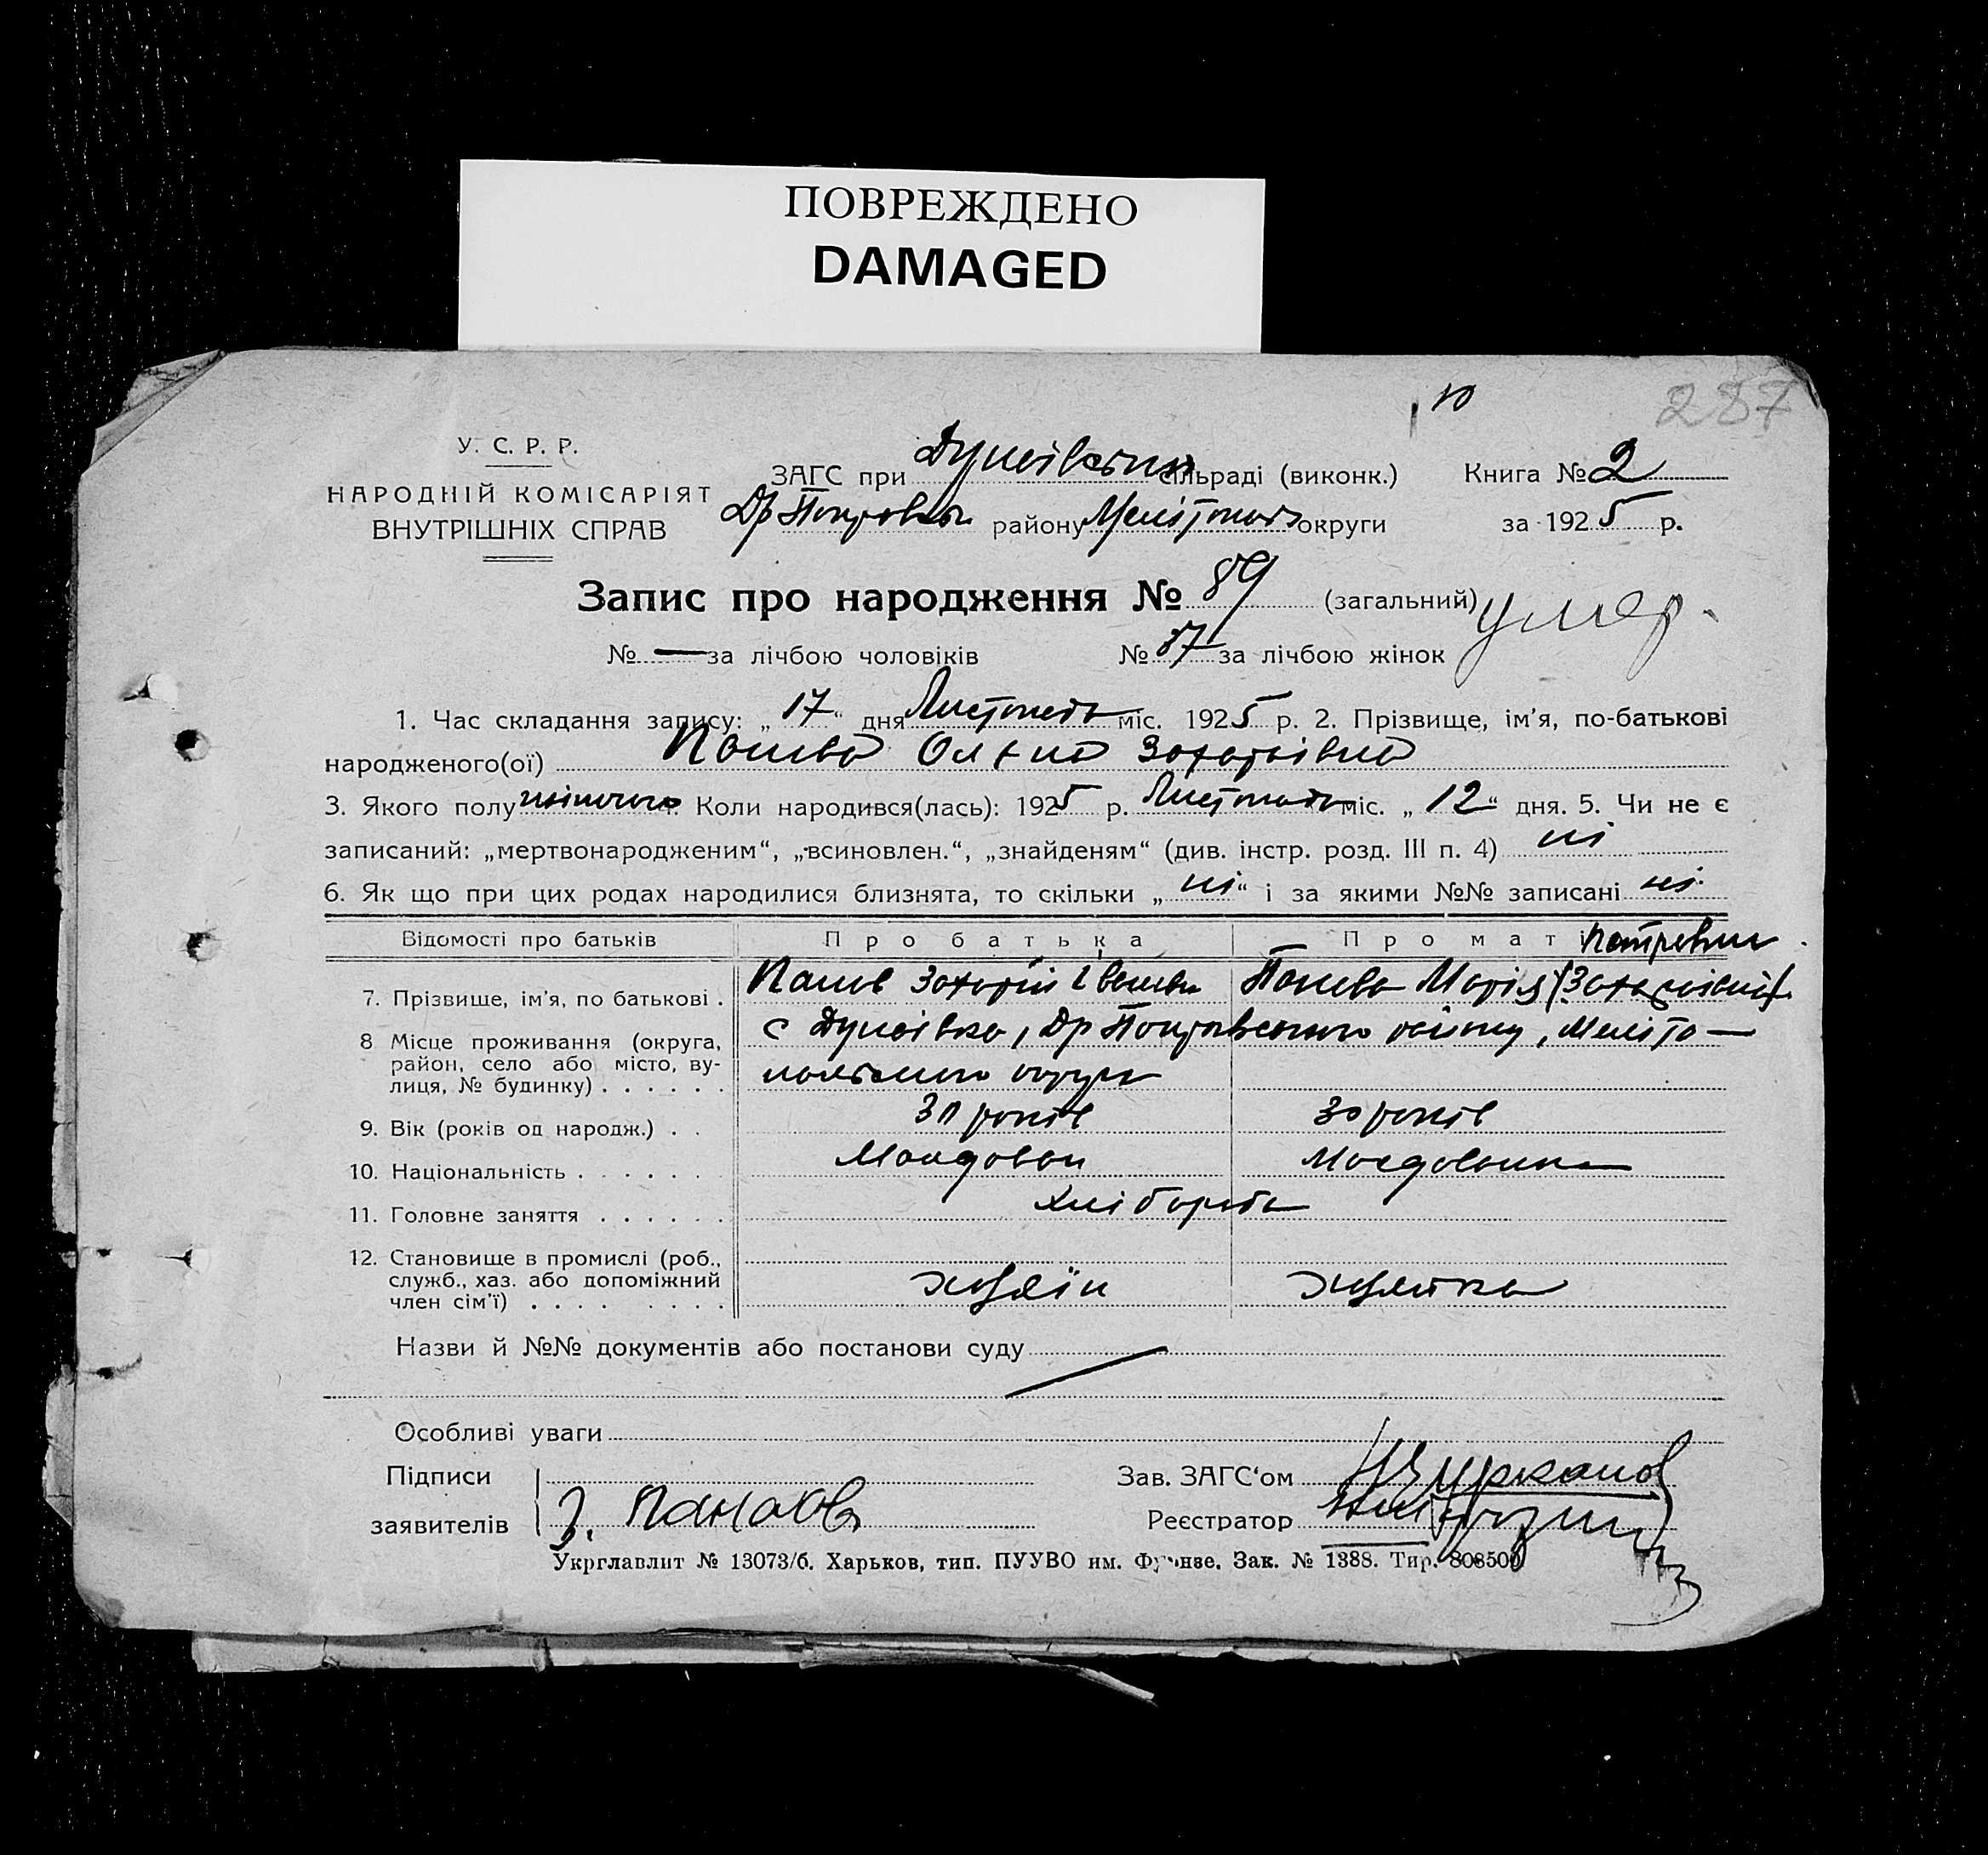 ПОВРЕЖДЕНО
DAMAGED
10
287
У. С. Р. Р.
НАРОДНІЙ КОМІСАРІЯТ
ВНУТРІШНІХ СПРАВ
ЗАГС при Дунаївській сільраді (виконк.) Книга № 2
району Мелітопол округи за 1925 р.
Запис про народження № 89 (загальний) умер.
№ — за лічбою чоловіків № 37 за лічбою жінок
1. Час складання запису: „17“ дня Листопада міс. 1925 р. 2. Прізвище, ім'я, по-батькові
народженого(ої) Ольга Захаріївна
3. Якого полу жіночого Коли народився(лась): 1925 р. Листопада міс. „12“ дня. 5. Чи не є
записаний: „мертвонародженим“, „всиновлен.“, „знайденям“ (див. інстр. розд. III п. 4) ні
6. Як що при цих родах народилися близнята, то скільки „ні“ і за якими №№ записані ні
Відомості про батьків Про батька Про маті
7. Прізвище, ім'я, по батькові . Захарій Марія
8 Місце проживання (округа,
район, село або місто, ву-
лиця, № будинку) . . . . . .
с Дунаївка, Меліто—
польської округи
9. Вік (років од народж.) . . років 30 років
10. Національність . . . . . . Молдован Молдованка
11. Головне заняття . . . . . . Хлібороб
12. Становище в промислі (роб.,
служб., хаз. або допоміжний
член сім'ї) . . . . . . . . .
хозяїн хозяйка
Назви й №№ документів або постанови суду
Особливі уваги
Підписи Зав. ЗАГС'ом
заявителів З. Реєстратор
Укрглавлит № 13073/б. Харьков, тип. ПУУВО им. Фрунзе. Зак. № 1388. Тир. 808500